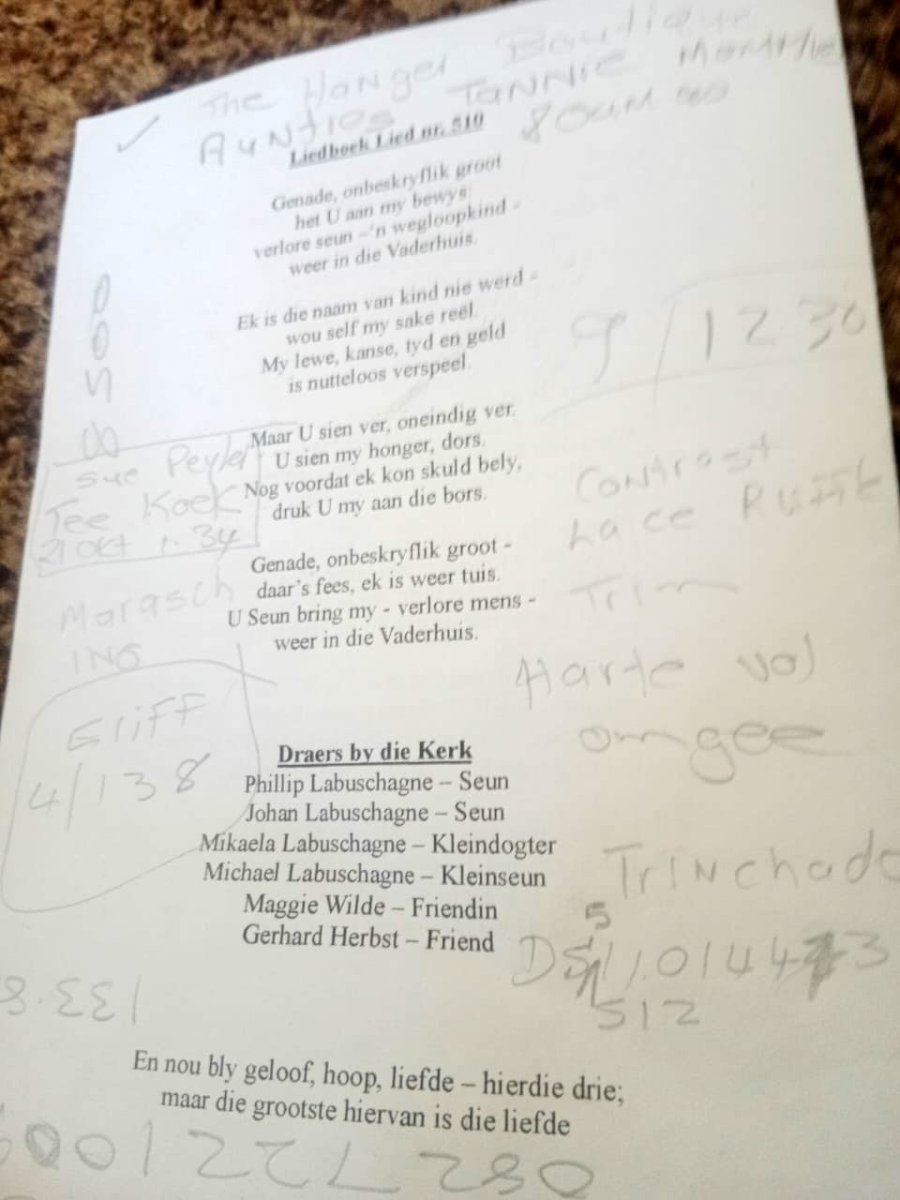 The Hanger Boutique
Aunties Tannie Mommie
Liedboek Lied nr. 510
Genade, onbeskryflik groot
het U aan my bewys:
verlore seun – 'n wegloopkind -
weer in die Vaderhuis.
Ek is die naam van kind nie werd -
wou self my sake reël.
My lewe, kanse, tyd en geld
is nutteloos verspeel.
9/1230
Maar U sien ver, oneindig ver.
U sien my honger, dors.
Nog voordat ek kon skuld bely,
druk U my aan die bors.
Sue Peyler
Tee Koek
21 Okt 1.34
Contrast
Lace
Trim
Genade, onbeskryflik groot -
daar's fees, ek is weer tuis.
U Seun bring my - verlore mens -
weer in die Vaderhuis.
Marasch
ING
Harte vol
omgee
Griff
4/138
Draers by die Kerk
Phillip Labuschagne – Seun
Johan Labuschagne – Seun
Mikaela Labuschagne – Kleindogter
Michael Labuschagne – Kleinseun
Maggie Wilde – Friendin
Gerhard Herbst – Friend
Trinchado
512
133.8
En nou bly geloof, hoop, liefde – hierdie drie;
maar die grootste hiervan is die liefde